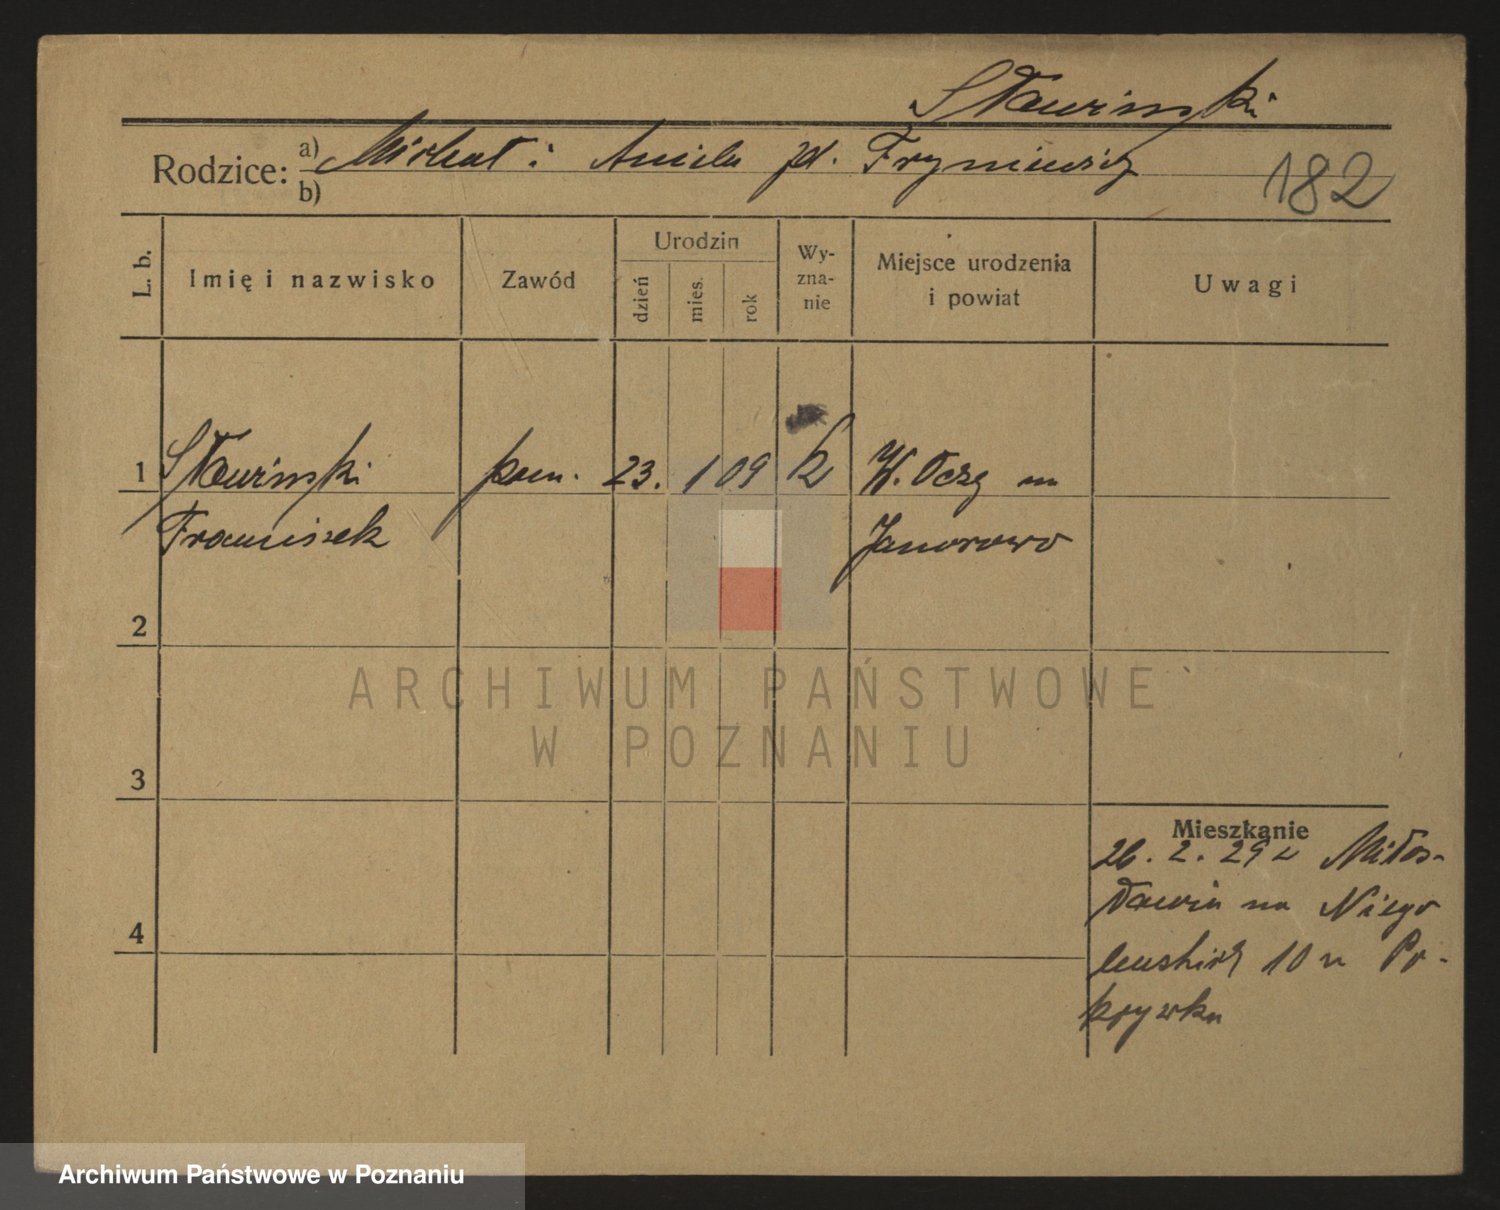 Sławiński
Rodzice: a) Michał i Aniela zd. Fryniewicz
b)
182
L. b.
Imię i nazwisko
Zawód
Urodzin
dzień
mies.
rok
Wy-
zna-
nie
Miejsce urodzenia
i powiat
Uwagi
1 Sławiński pom. 23. 1 09 k W.
Franciszek Janorowo
2
3
4
Mieszkanie
26. 2. 29 z Miłos-
ławia na Niego
lewskich 10 u Po-
krywka
ARCHIWUM PAŃSTWOWE
W POZNANIU
Archiwum Państwowe w Poznaniu